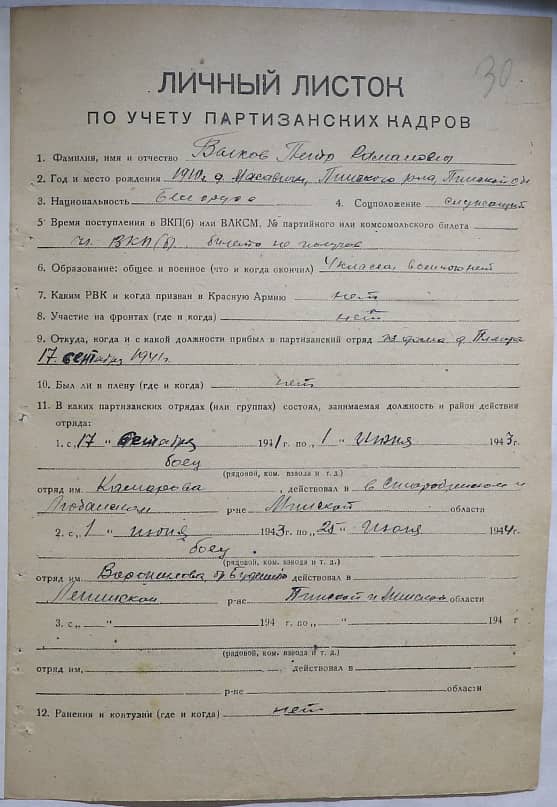 30
ЛИЧНЫЙ ЛИСТОК
ПО УЧЕТУ ПАРТИЗАНСКИХ КАДРОВ
1. Фамилия, имя и отчество Петр
2. Год и место рождения 1910г д. Пинского р-на, Пинской обл
3. Национальность Белорус 4. Соцположение служащий
5 Время поступления в ВКП(б) или ВЛКСМ. № партийного или комсомольского билета
чл. ВКП(б) билета не получал
6. Образование: общее и военное (что и когда окончил) 4 класса, военного нет
7. Каким РВК и когда призван в Красную Армию нет
8. Участие на фронтах (где и когда) нет
9. Откуда, когда и с какой должности прибыл в партизанский отряд из д.
17 сентября 1941г
10. Был ли в плену (где и когда) нет
11. В каких партизанских отрядах (или группах) состоял, занимаемая должность и район действия
отряда:
1. с „17 “ сентября 1941 г. по „1 “ июня 1943 г.
боец
(рядовой, ком. взвода и т. д.)
отряд им. Комарова, действовал в Старобинском и
Любанском р-не Минской области
2. с „1 “ июня 1943 г. по „25 “ июня 1944 г.
боец
(рядовой, ком. взвода и т. д.)
отряд им. Ворошилова действовал в
Ленинском р-не Пинской и Минской области
3. с „ “ 194 г. по „ “ 194 г
(рядовой, ком. взвода и т. д.)
отряд им. , действовал в
р-не области
12. Ранения и контузии (где и когда) нет